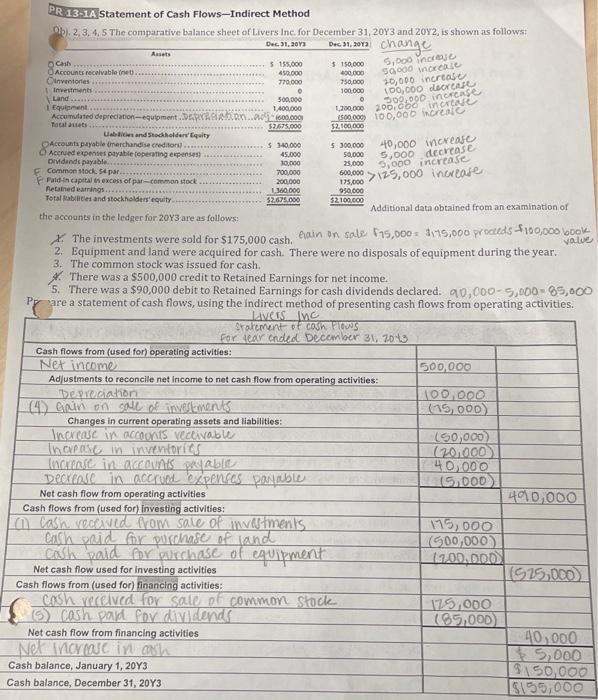 PR 13-1A Statement of Cash Flows—Indirect Method
Obj. 2, 3, 4, 5 The comparative balance sheet of Livers Inc. for December 31, 20Y3 and 20Y2, is shown as follows:
Dec. 31, 20Y3 Dec. 31, 20Y2 change
Assets
Cash $ 155,000 $ 150,000 5,000 increase
Accounts receivable (net) 450,000 400,000 50,000 increase
Inventories 770,000 750,000 20,000 increase
Investments 0 100,000 100,000 decrease
Land 500,000 0 500,000 increase
Equipment 1,400,000 1,200,000 200,000 increase
Accumulated depreciation—equipment (600,000) (500,000) 100,000 increase
Total assets $2,675,000 $2,100,000
Liabilities and Stockholders' Equity
Accounts payable (merchandise creditors) $ 340,000 $ 300,000 40,000 increase
Accrued expenses payable (operating expenses) 45,000 50,000 5,000 decrease
Dividends payable 30,000 25,000 5,000 increase
F Common stock, $4 par 700,000 600,000 >125,000 increase
F Paid-in capital in excess of par—common stock 200,000 175,000
Retained earnings 1,360,000 950,000
Total liabilities and stockholders' equity $2,675,000 $2,100,000
Additional data obtained from an examination of
the accounts in the ledger for 20Y3 are as follows:
1. The investments were sold for $175,000 cash. Gain on sale $75,000 = $175,000 proceeds - $100,000 book value
2. Equipment and land were acquired for cash. There were no disposals of equipment during the year.
3. The common stock was issued for cash.
4. There was a $500,000 credit to Retained Earnings for net income.
5. There was a $90,000 debit to Retained Earnings for cash dividends declared. 90,000-5,000=85,000
Prepare a statement of cash flows, using the indirect method of presenting cash flows from operating activities.
Livers Inc
Statement of Cash Flows
For Year ended December 31, 20Y3
Cash flows from (used for) operating activities:
Net income 500,000
Adjustments to reconcile net income to net cash flow from operating activities:
Depreciation 100,000
(4) Gain on sale of investments (75,000)
Changes in current operating assets and liabilities:
Increase in accounts receivable (50,000)
Increase in inventories (20,000)
Increase in accounts payable 40,000
Decrease in accrued expenses payable (5,000)
Net cash flow from operating activities 490,000
Cash flows from (used for) investing activities:
(1) Cash received from sale of investments 175,000
Cash paid for purchase of land (500,000)
Cash paid for purchase of equipment (200,000)
Net cash flow used for investing activities (525,000)
Cash flows from (used for) financing activities:
cash received for sale of common stock 125,000
(5) cash paid for dividends (85,000)
Net cash flow from financing activities 40,000
Net increase in cash $ 5,000
Cash balance, January 1, 20Y3 $150,000
Cash balance, December 31, 20Y3 $155,000